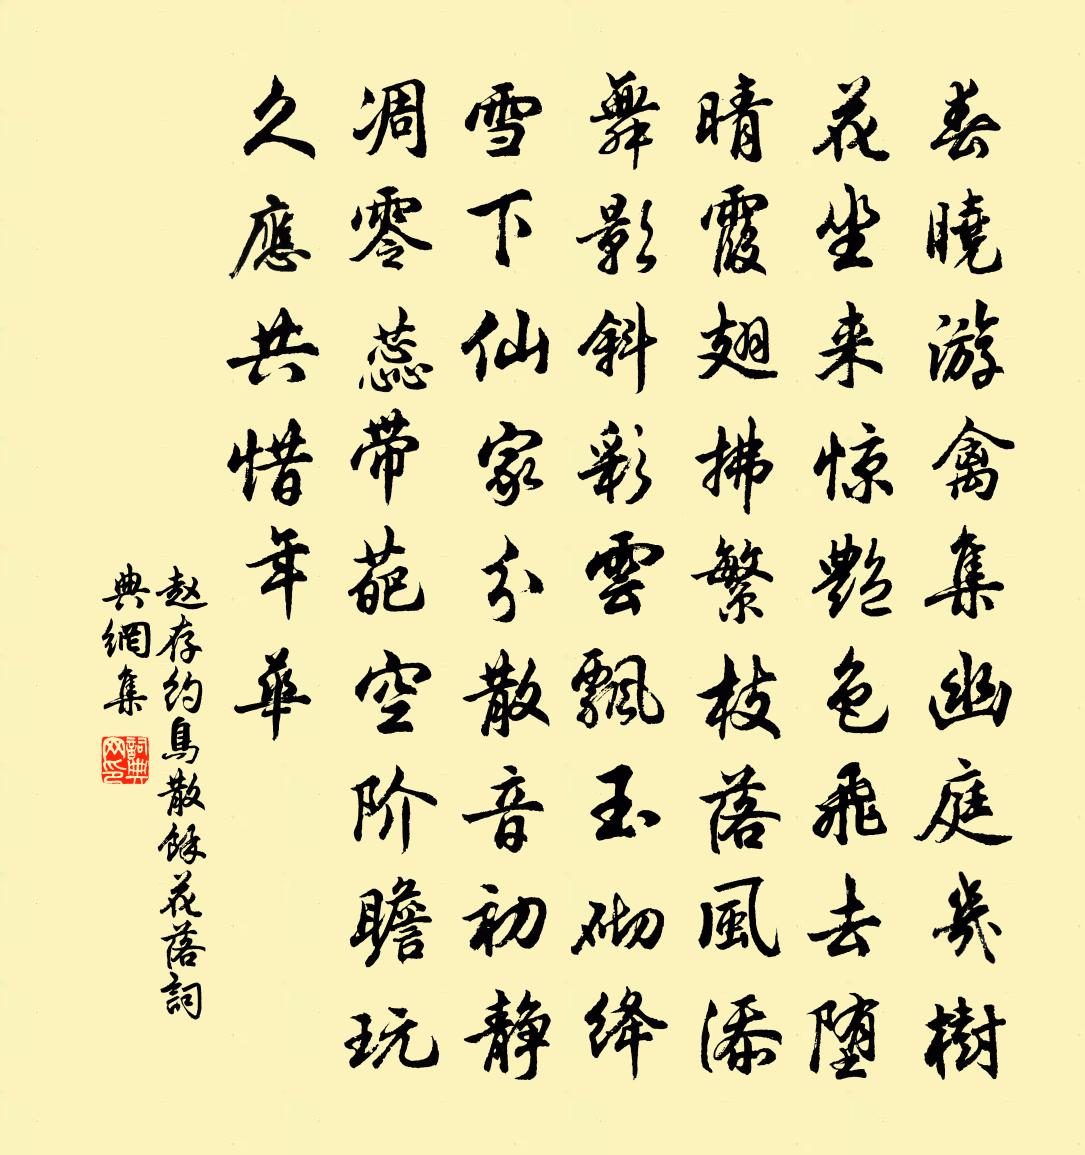 春曉游禽集幽庭幾樹
花坐来惊艷色飛去堕
晴霞翅拂繁枝落風添
舞影斜彩雲飄玉砌绛
雪下仙家分散音初静
凋零蕊带葩空阶瞻玩
久應共惜年華
赵存约鳥散餘花落詞
典網集
詞典网印